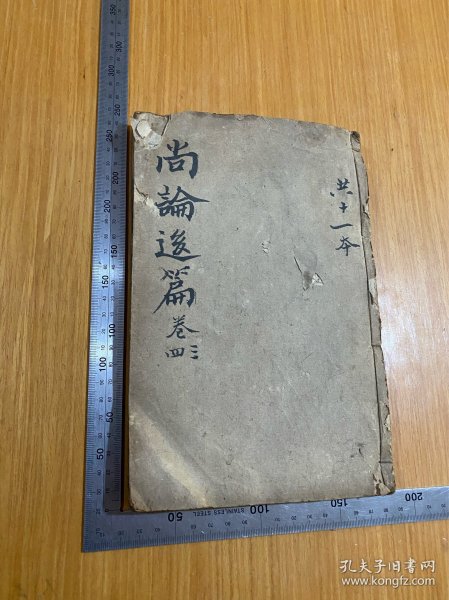 共十一本
尚論後篇
卷三四
50
100
150
200
STAINLESS STEEL
50
100
150
200
250
300
350
孔夫子旧书网
www.kongfz.com